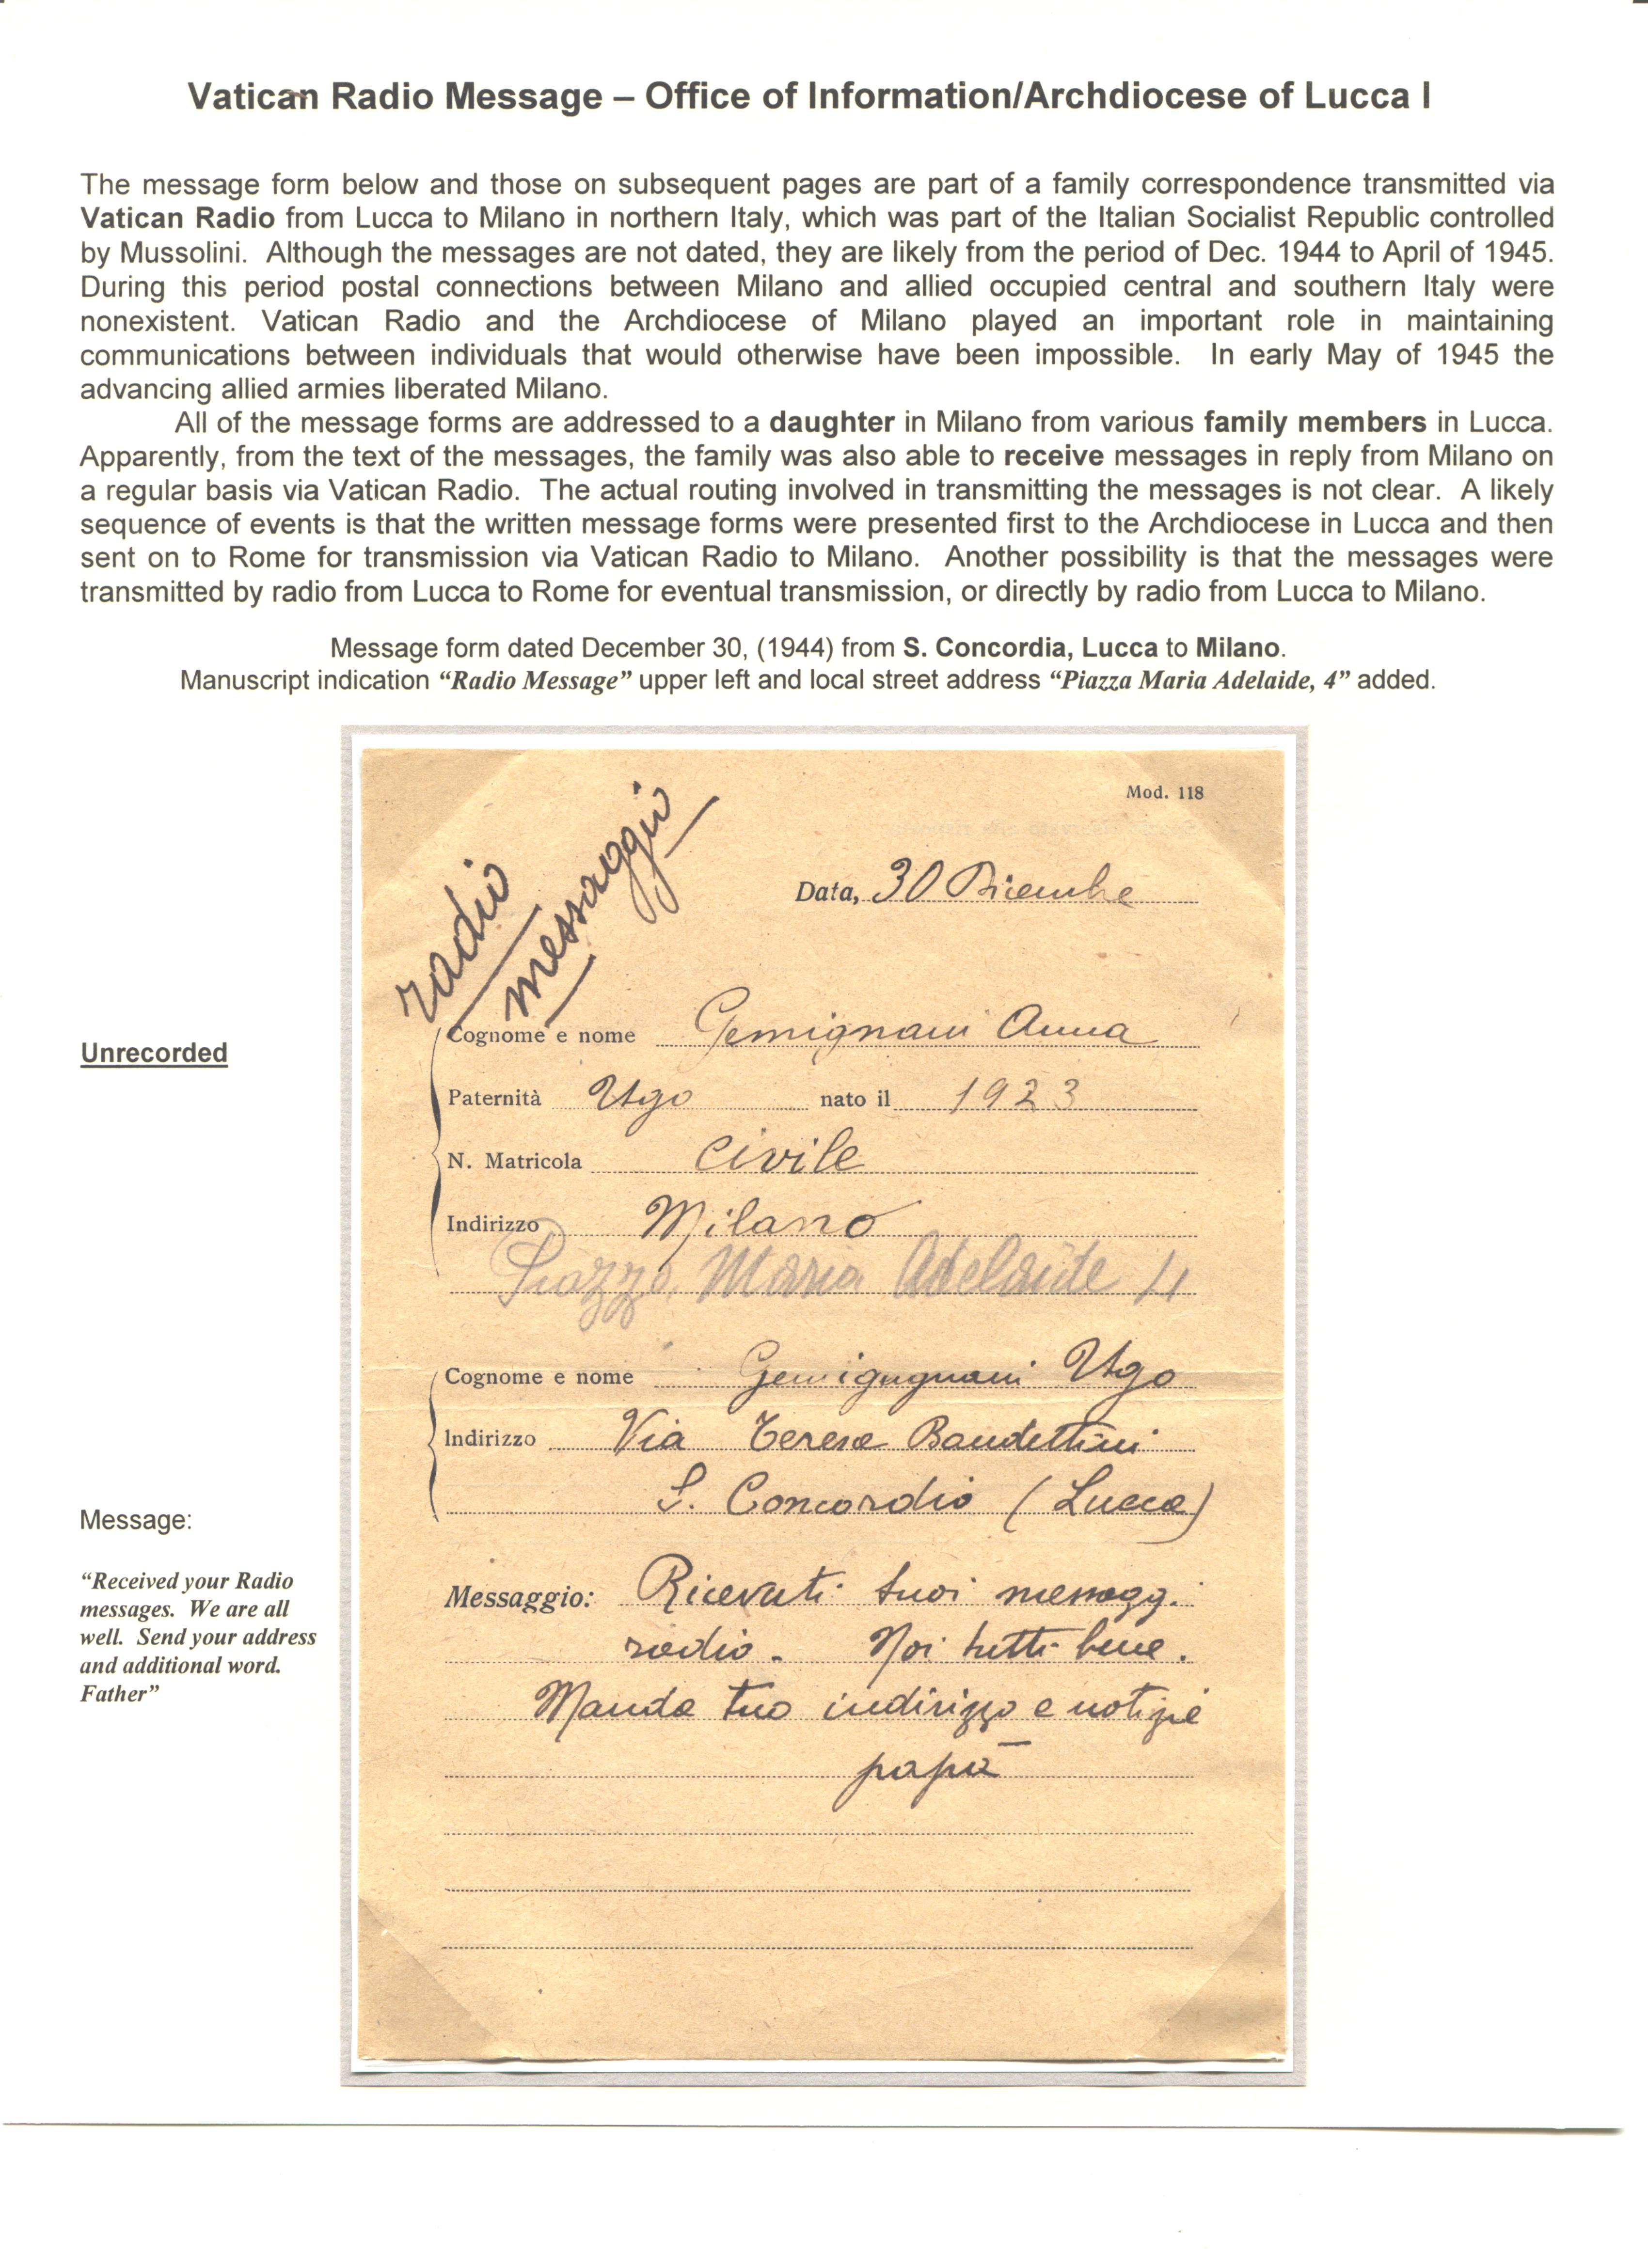 Vatican Radio Message – Office of Information/Archdiocese of Lucca I
The message form below and those on subsequent pages are part of a family correspondence transmitted via
Vatican Radio from Lucca to Milano in northern Italy, which was part of the Italian Socialist Republic controlled
by Mussolini. Although the messages are not dated, they are likely from the period of Dec. 1944 to April of 1945.
During this period postal connections between Milano and allied occupied central and southern Italy were
nonexistent. Vatican Radio and the Archdiocese of Milano played an important role in maintaining
communications between individuals that would otherwise have been impossible. In early May of 1945 the
advancing allied armies liberated Milano.
All of the message forms are addressed to a daughter in Milano from various family members in Lucca.
Apparently, from the text of the messages, the family was also able to receive messages in reply from Milano on
a regular basis via Vatican Radio. The actual routing involved in transmitting the messages is not clear. A likely
sequence of events is that the written message forms were presented first to the Archdiocese in Lucca and then
sent on to Rome for transmission via Vatican Radio to Milano. Another possibility is that the messages were
transmitted by radio from Lucca to Rome for eventual transmission, or directly by radio from Lucca to Milano.
Message form dated December 30, (1944) from S. Concordia, Lucca to Milano.
Manuscript indication “Radio Message” upper left and local street address “Piazza Maria Adelaide, 4” added.
Mod. 118
radio
messaggio
Data, 30 Dicembre
Cognome e nome Gemignani Anna
Unrecorded
Paternità Ugo nato il 1923
N. Matricola civile
Indirizzo Milano
Piazza Maria Adelaide 4
Cognome e nome Gemigngnani Ugo
Indirizzo Via Teresa Bandettini
S. Concordio (Lucca)
Message:
“Received your Radio
messages. We are all
well. Send your address
and additional word.
Father”
Messaggio: Ricevuti tuoi messaggi
radio. Noi tutti bene.
Manda tuo indirizzo e notizie
papà